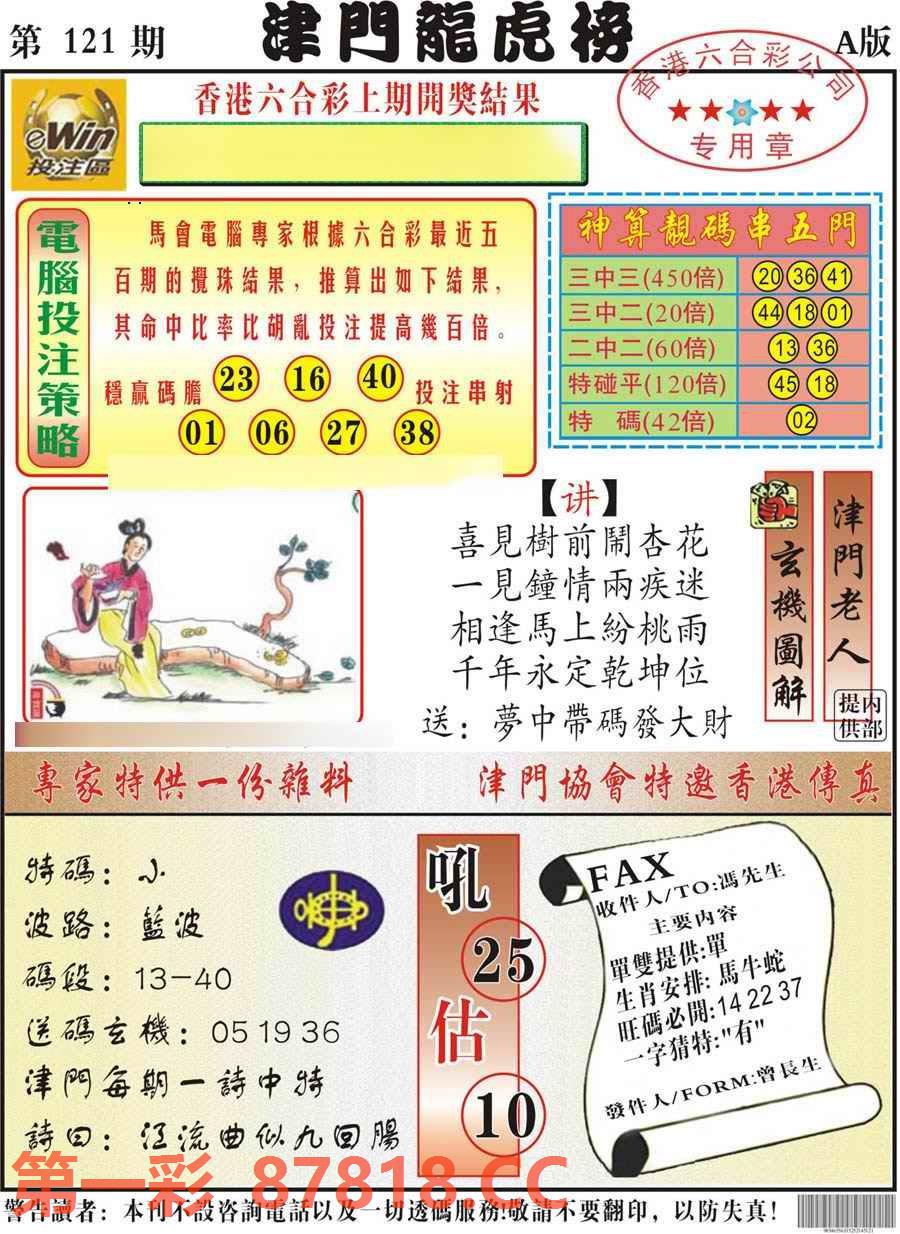 第 121 期
津門龍虎榜
A版
香港六合彩公司
专用章
eWin
投注區
香港六合彩上期開獎結果
電腦投注策略
馬會電腦專家根據六合彩最近五
百期的攪珠結果，推算出如下結果，
其命中比率比胡亂投注提高幾百倍。
穩贏碼膽 23 16 40 投注串射
01 06 27 38
神算靚碼串五門
三中三(450倍) 20 36 41
三中二(20倍) 44 18 01
二中二(60倍) 13 36
特碰平(120倍) 45 18
特 碼(42倍) 02
【讲】
喜見樹前鬧杏花
一見鐘情兩疾迷
相逢馬上紛桃雨
千年永定乾坤位
送：夢中帶碼發大財
玄機圖解
津門老人
内部提供
專家特供一份雜料
津門協會特邀香港傳真
特碼：小
波路：藍波
碼段：13-40
送碼玄機：05 19 36
津門每期一詩中特
詩曰：江流曲似九回腸
吼
25
估
10
FAX
收件人/TO:馮先生
主要内容
單雙提供:單
生肖安排: 馬牛蛇
旺碼必開:14 22 37
一字猜特:"有"
發件人/FORM:曾長生
第一彩 87818.CC
警告讀者：本刊不設咨詢電話以及一切透碼服務!敬請不要翻印，以防失真！